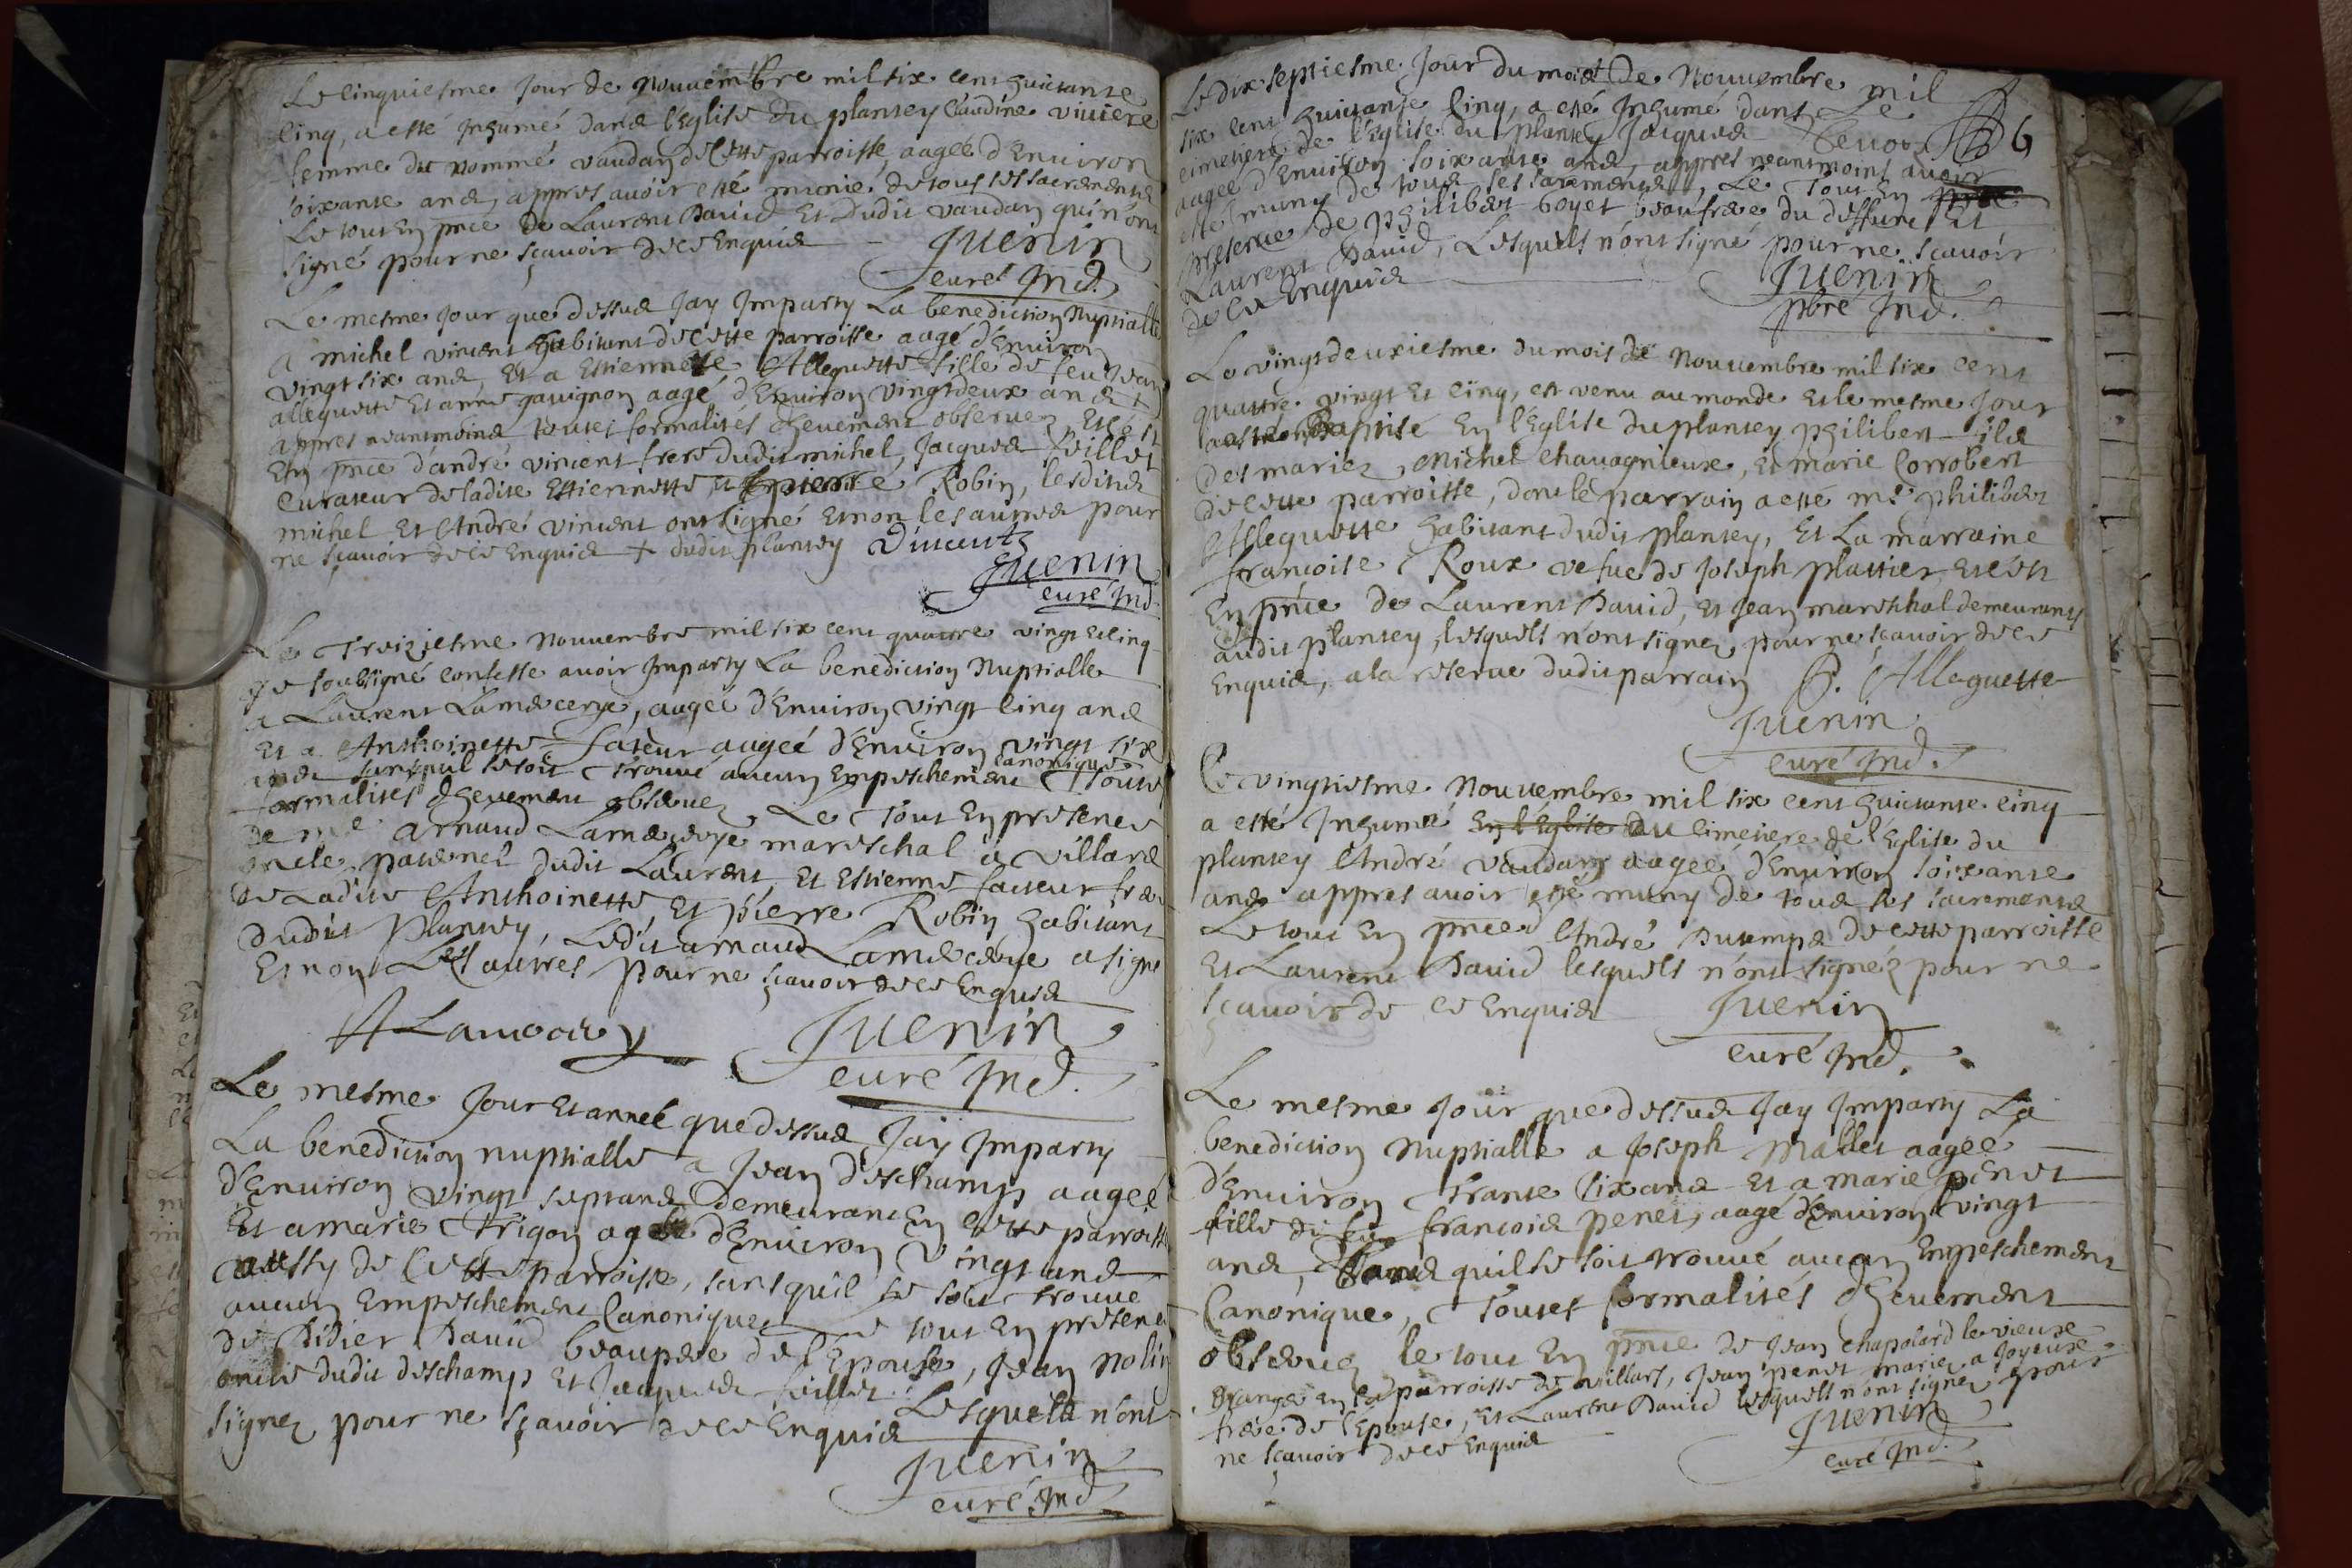 Le cinquiesme Jour de Nouvembre mil six cent huictante
cinq, a esté Inhumé dans l'Eglise du plantey Claudine viviere
femme du nommé vaudan de cette parroisse aagée d'Environ
soixante ans, appres avoir esté munié de tous ses sacrements
Le tout En pnce de Laurent David Et dudit vaudan qui n'ont
signé pour ne sçavoir de ce Enquis Juenin
curé Ind.
Le mesme Jour que dessus Jay Imparty La benediction Nuptialle
a michel vincent habitant de cette parroisse aagé d'Environ
vingt six ans, Et a Estiennette Alleguette fille de feu Jean
alleguette Et anne gavignon aagé d'Environ vingt deux ans +
appres neantmoins toutes formalités dheuement observez, Et ce st
En pnce d'andré vincent frere dudit michel, Jacques feillet
Curateur de ladite Estiennette Et pierre Robin, lesdits
michel Et André vincent ont signé Et non les autres pour
ne sçavoir de ce Enquis + dudit plantey Vincentz
Juenin
curé Ind.
Le Treiziesme Nouvembre mil six cent quattre vingt Et cinq
Je soubsigné confesse avoir Imparty La benediction Nuptialle
a Laurent Lamercerye, aageé d'Environ vingt cinq ans
Et a Anthoinette faseur aageé d'Environ vingt six
ans sans quil se soit Trouvé aucun Empeschement canonique Toute
formalites dheuement observez, Le Tout En presence
de Mre arnaud Lamercerye mareschal a villars
oncle paternel dudit Laurent, Et Estienne faiseur frere
de Ladite Anthoinette, Et pierre Robin habitant
dudit Plantey, Ledit arnaud Lamercerye a signé
Et non Les autres pour ne sçavoir de ce Enquis
A Lamercery Juenin
curé Ind.
Le mesme Jour Et année que dessus Jay Imparty
La benediction nuptialle a Jean deschamp aageé
d'Environ vingt sept ans demeurant En cette parroisse
Et a marie Trigon ageé d'Environ Vingt ans
aussy de Cette parroisse, sans quil se soit trouvé
aucun Empeschement Canonique, Le tout En presence
de Didier David beaupere de l'Epouse, Jean Nolin
oncle dudit deschamp Et Jacques feillet Lesquels n'ont
signez pour ne sçavoir de ce Enquis
Juenin
curé Ind.
Le dix septiesme Jour du mois de Nouvembre mil
six cent huictante Cinq, a esté Inhumé dans Le
cimetiere de l'Eglise du plantey Jacques Tenon 6
aagée d'Environ soixante ans, appres neantmoins avoir
esté muny de tous ses sacrements, Le Tout En
presence de philibert boyet beaufrere du deffunt Et
Laurent David, Lesquels n'ont signé pour ne sçavoir
de ce Enquis Juenin
pbre Ind.
Le vingt deuxiesme du mois de Nouvembre mil six cent
quattre vingt Et cinq, est venu au monde Et le mesme Jour
a esté Baptisé En l'Eglise du plantey philibert fils
des mariez, Michel Chavagnieux, Et marie Corrobert
de cette parroisse, dont le parrain a esté mre philibert
Alleguette habitant dudit plantey, Et La marraine
françoise Roux vefue de Joseph plattier, Et c'est
En pnce de Laurent David, Et Jean mareschal demeurants
audit plantey, lesquels n'ont signez pour ne sçavoir de ce
Enquis, a la reserve dudit parrain P. Alleguette
Juenin
curé Ind.
Le vingtiesme Nouvembre mil six cent huictante cinq
a esté Inhumé En l'Eglise du Cimetiere de l'Eglise du
plantey André vaudan aageé d'Environ soixante
ans appres avoir esté muny de tous ses sacrements
Le tout En pnce d'André Dutemps de cette parroisse
Et Laurent David lesquels n'ont signéz pour ne
sçavoir de ce Enquis Juenin
curé Ind.
Le mesme Jour que dessus Jay Imparty La
benediction Nuptialle a Joseph Mallet aageé
d'Environ Trante six ans Et a marie penet
fille de feu françois penet, aagé d'Environ vingt
ans, Sans quil se soit trouvé aucun Empeschement
Canonique, Toutes formalités dheuement
observez le tout En pnce de Jean Chapolard le vieux
Granger En la parroisse de villars, Jean penet marié a Joyeux
frere de l'Epouse, Et Laurent David lesquels n'ont signez pour
ne sçavoir de ce Enquis Juenin
curé Ind.